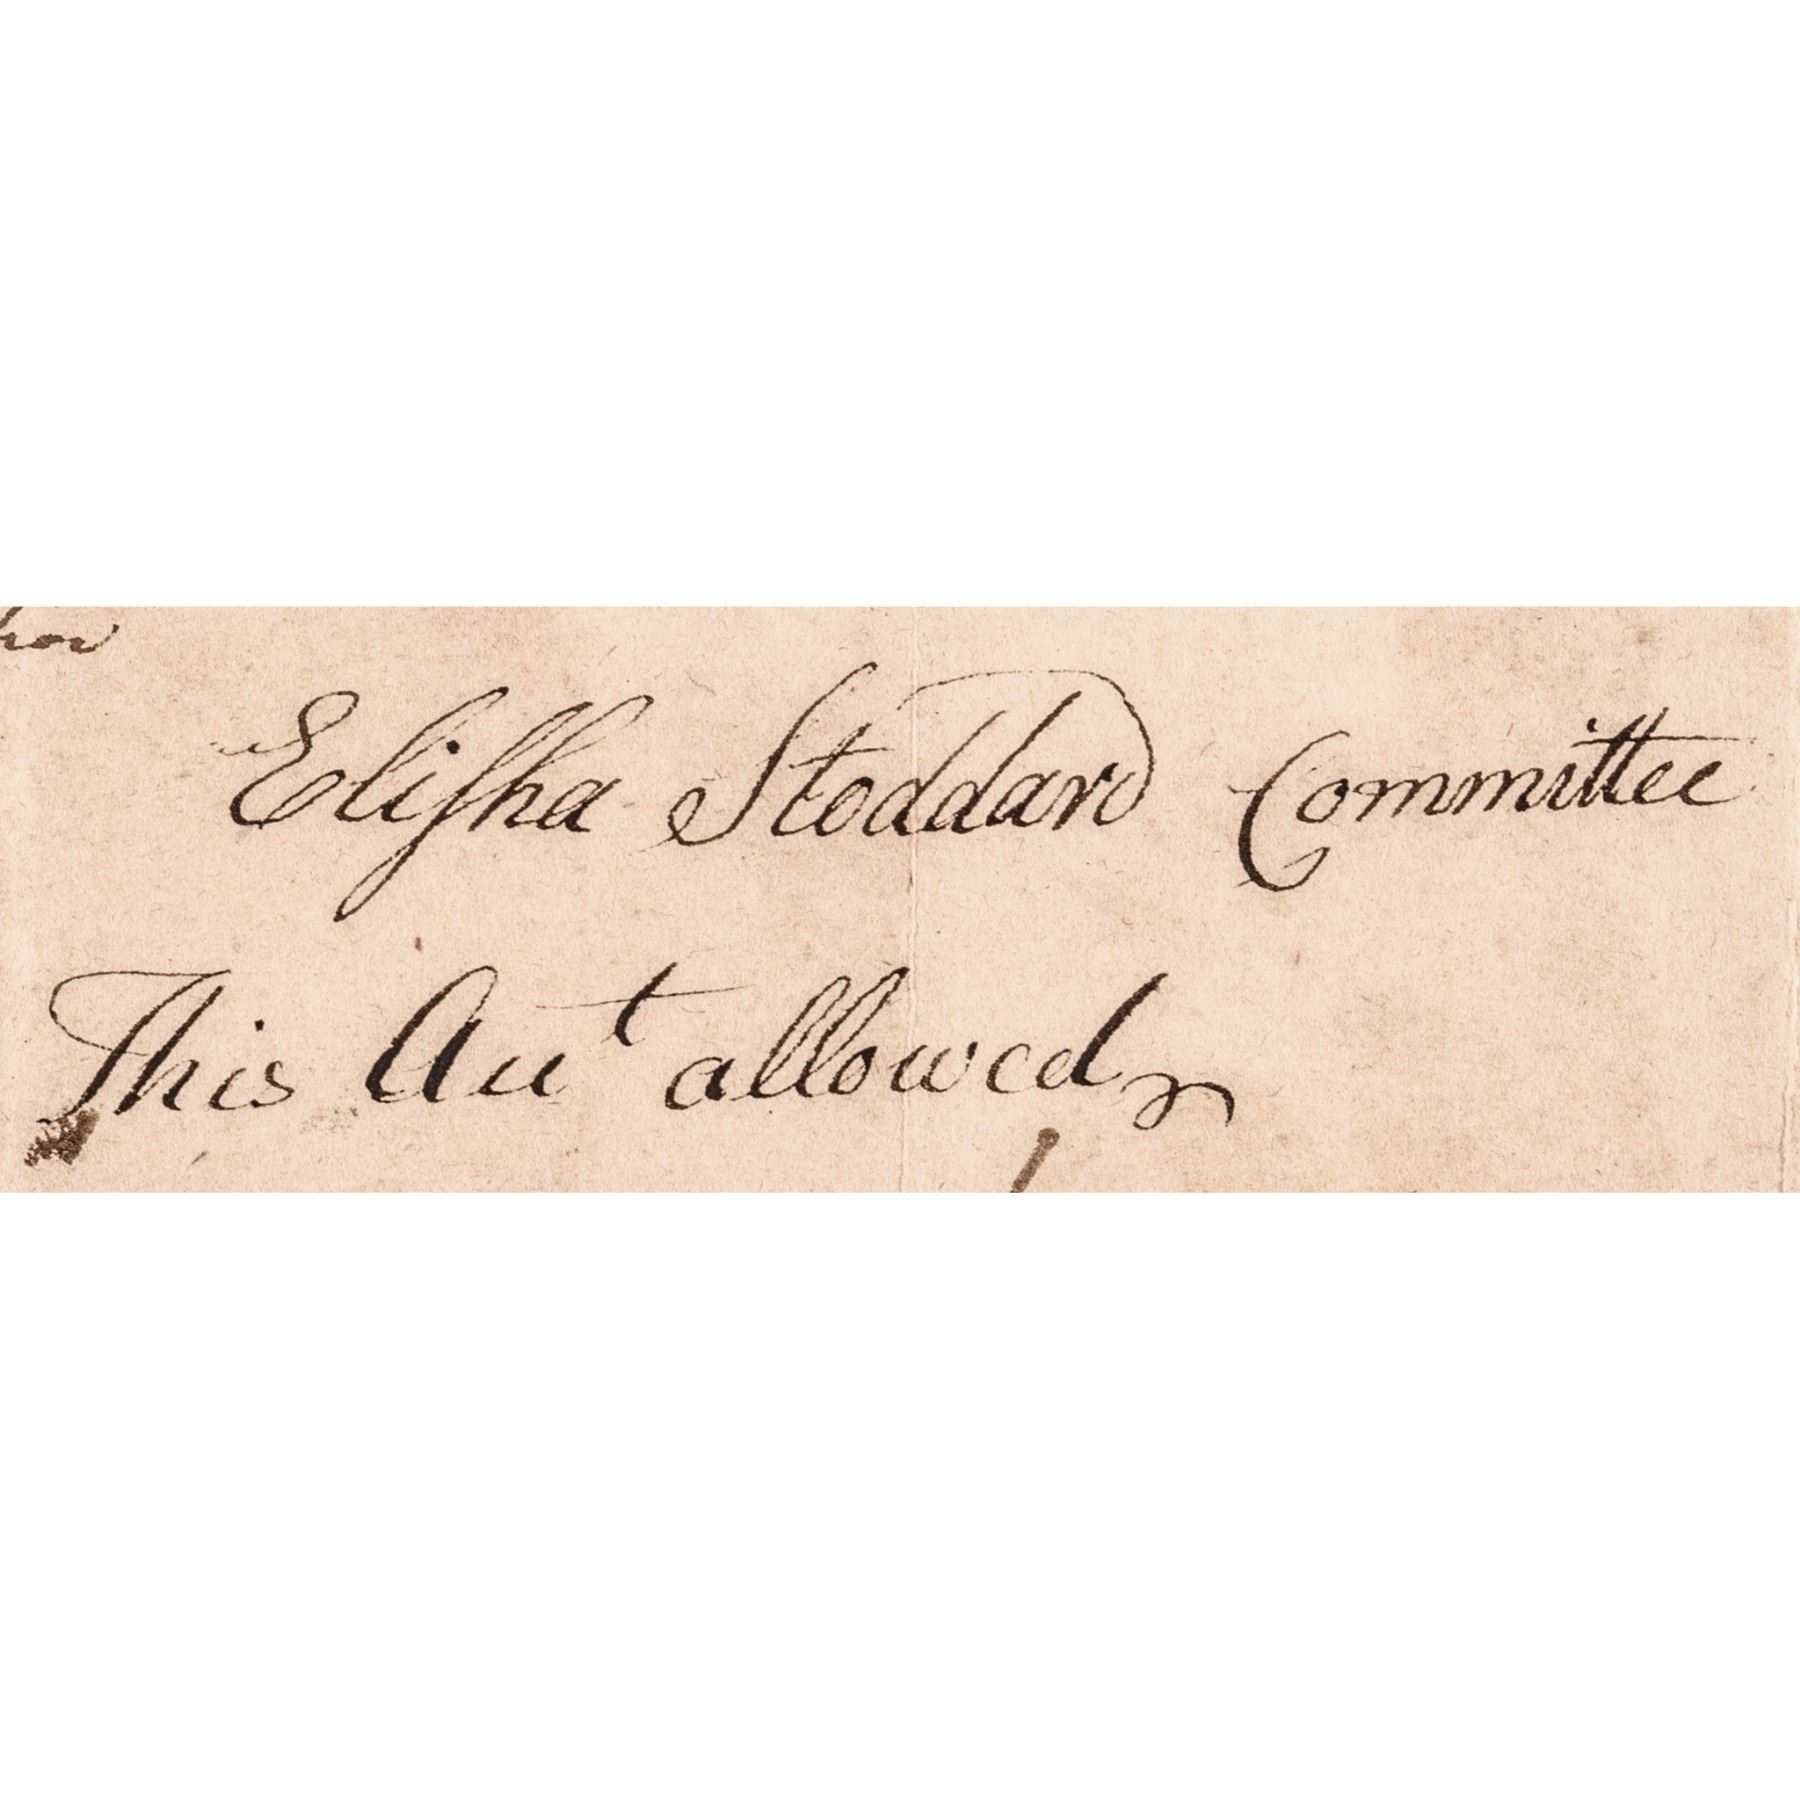 Eliſha Stoddard Committee
This Acct allowed